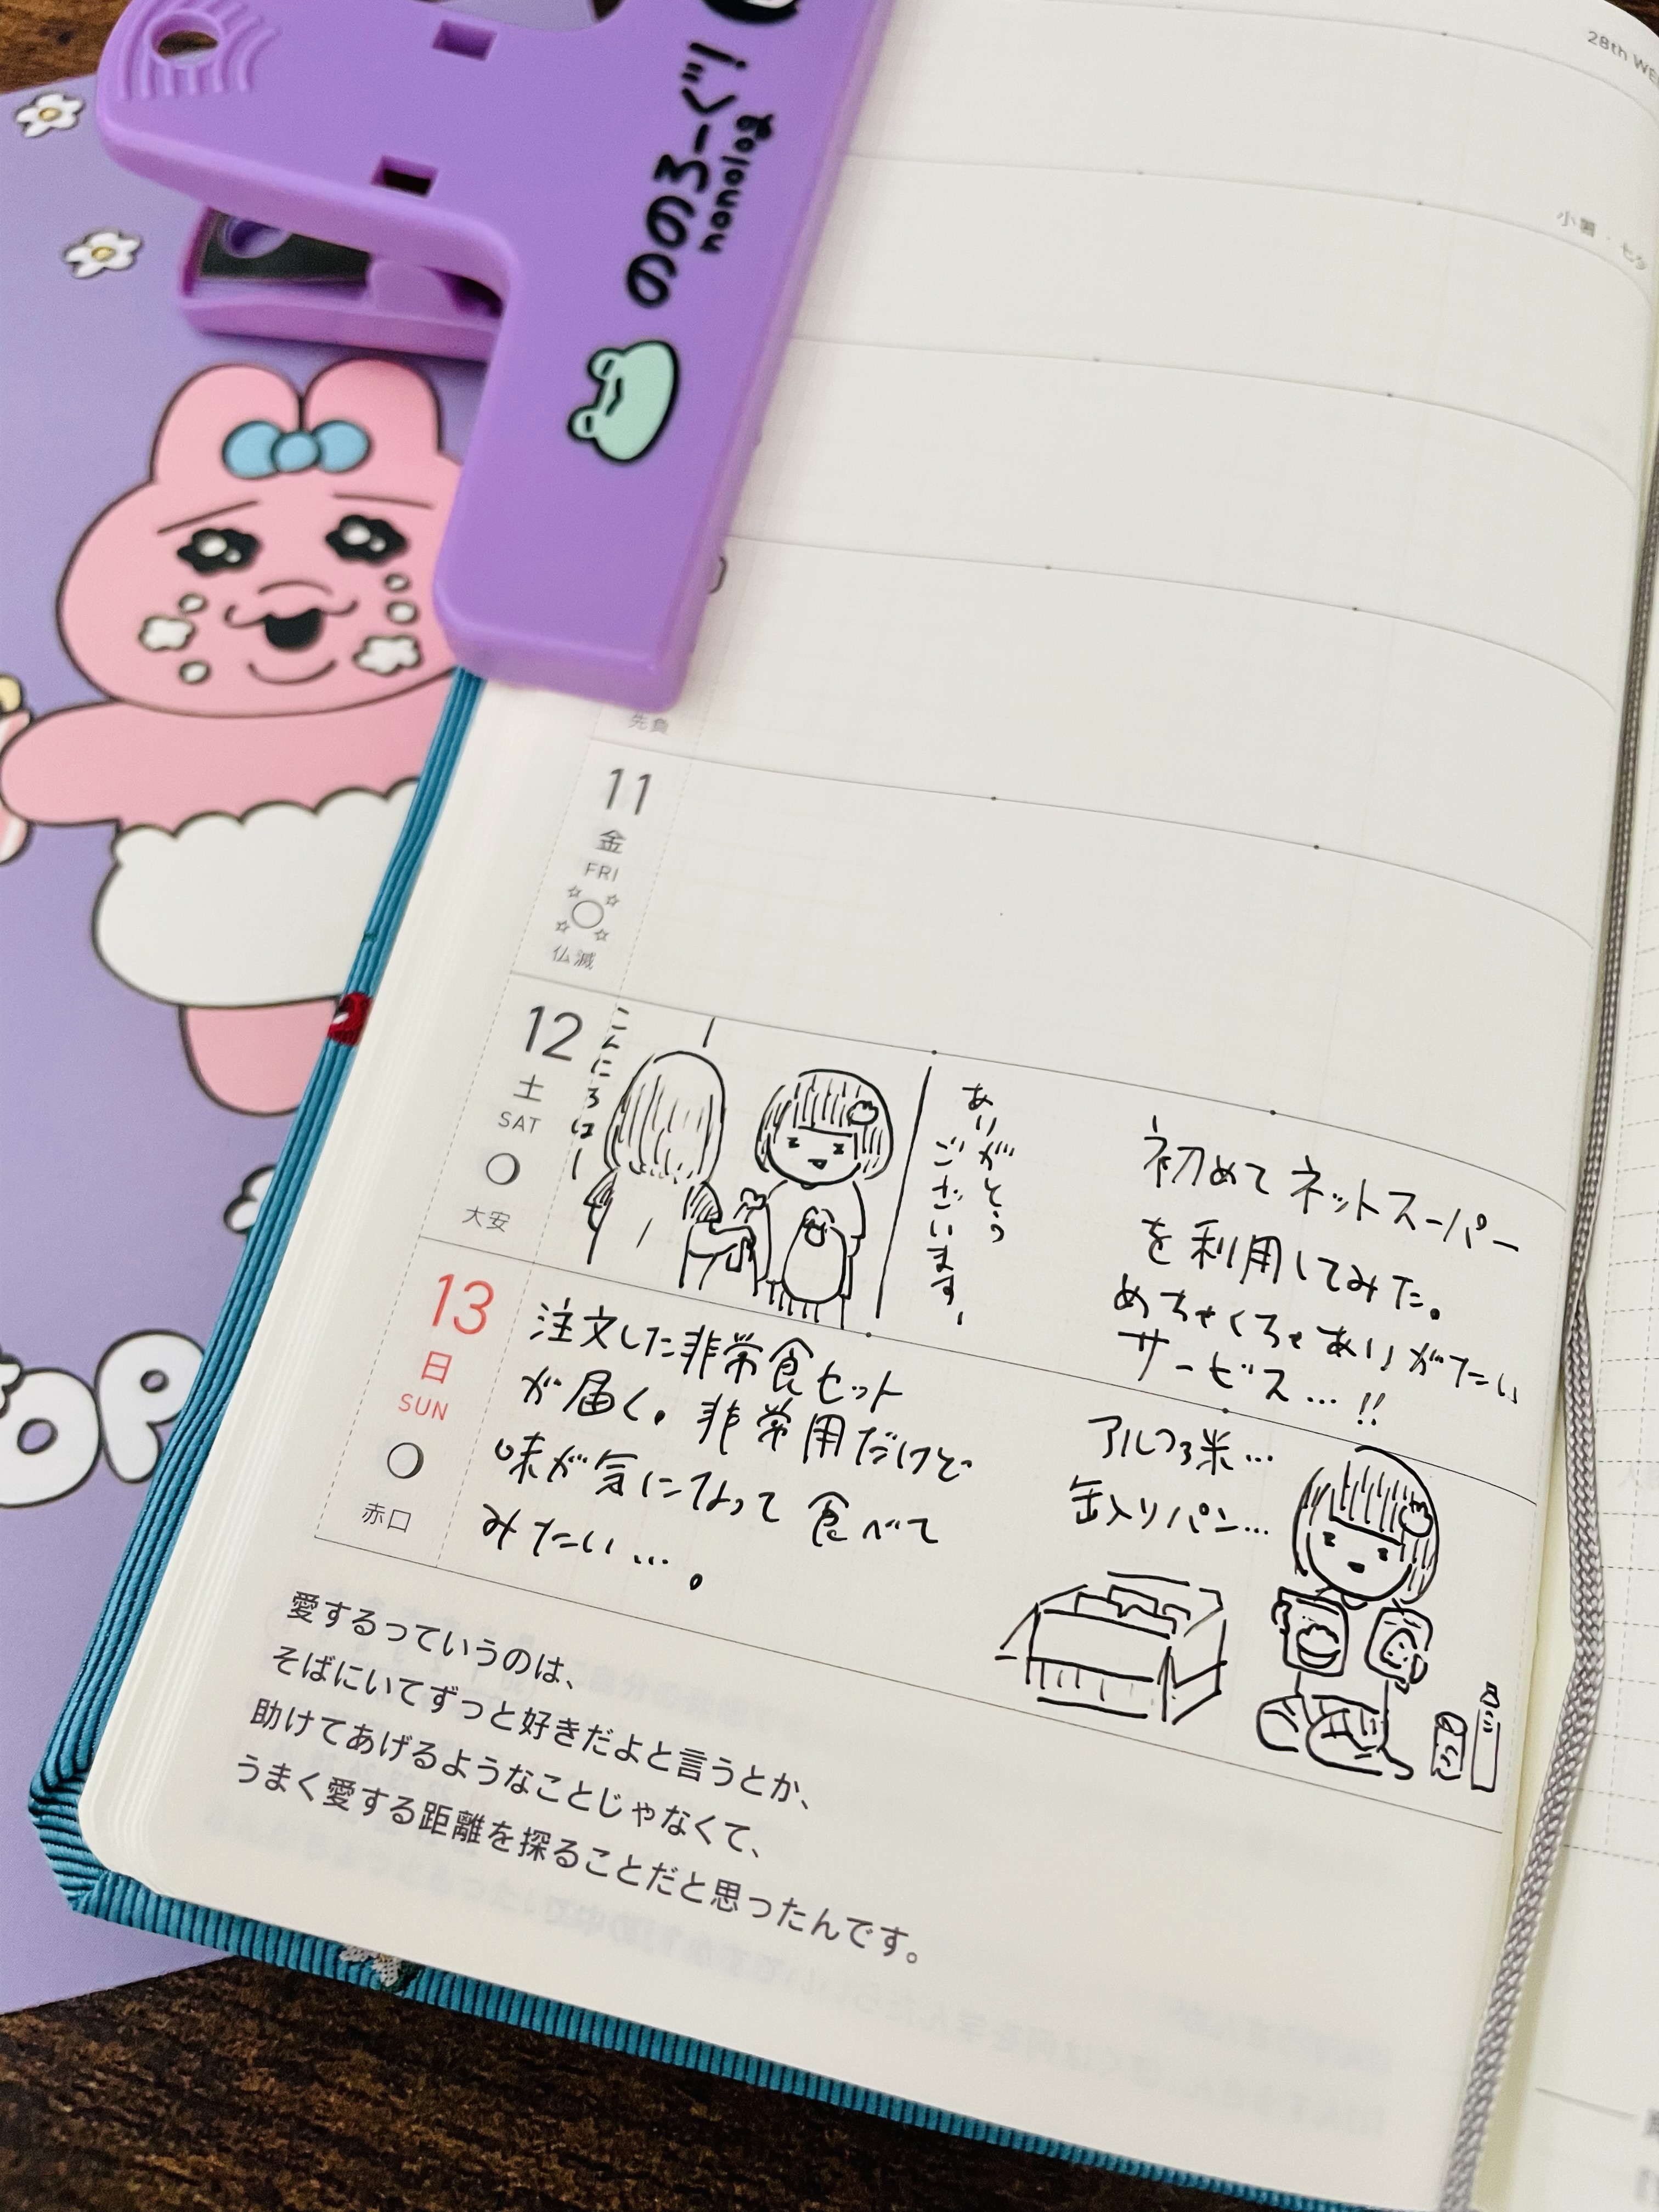 ののろーぐ!
nonolog
28th WE
小暑・七夕
先負
11
金
FRI
仏滅
12
土
SAT
大安
こんにちはー
ありがとう
ございます。
初めてネットスーパー
を利用してみた。
めちゃくちゃありがたい
サービス…!!
13
日
SUN
赤口
注文した非常食セット
が届く。非常用だけど
味が気になって食べて
みたい…。
アルファ米…
缶入りパン…
愛するっていうのは、
そばにいてずっと好きだよと言うとか、
助けてあげるようなことじゃなくて、
うまく愛する距離を探ることだと思ったんです。
OP